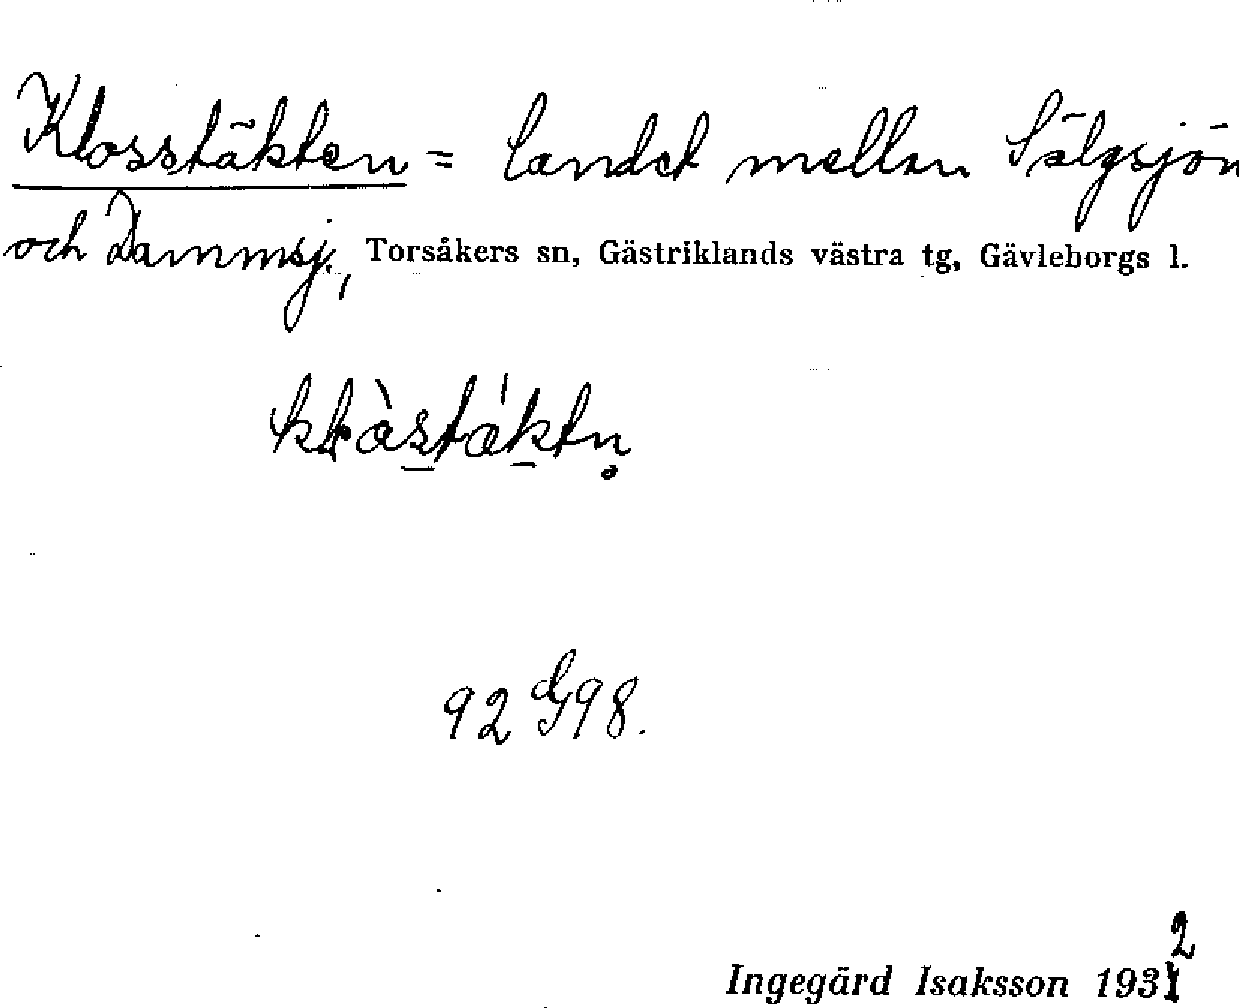 Klosstäkten = landet mellan Sälgsjön
och Dammsj., Torsåkers sn, Gästriklands västra tg, Gävleborgs l.
92 G 98.
Ingegärd Isaksson 1932